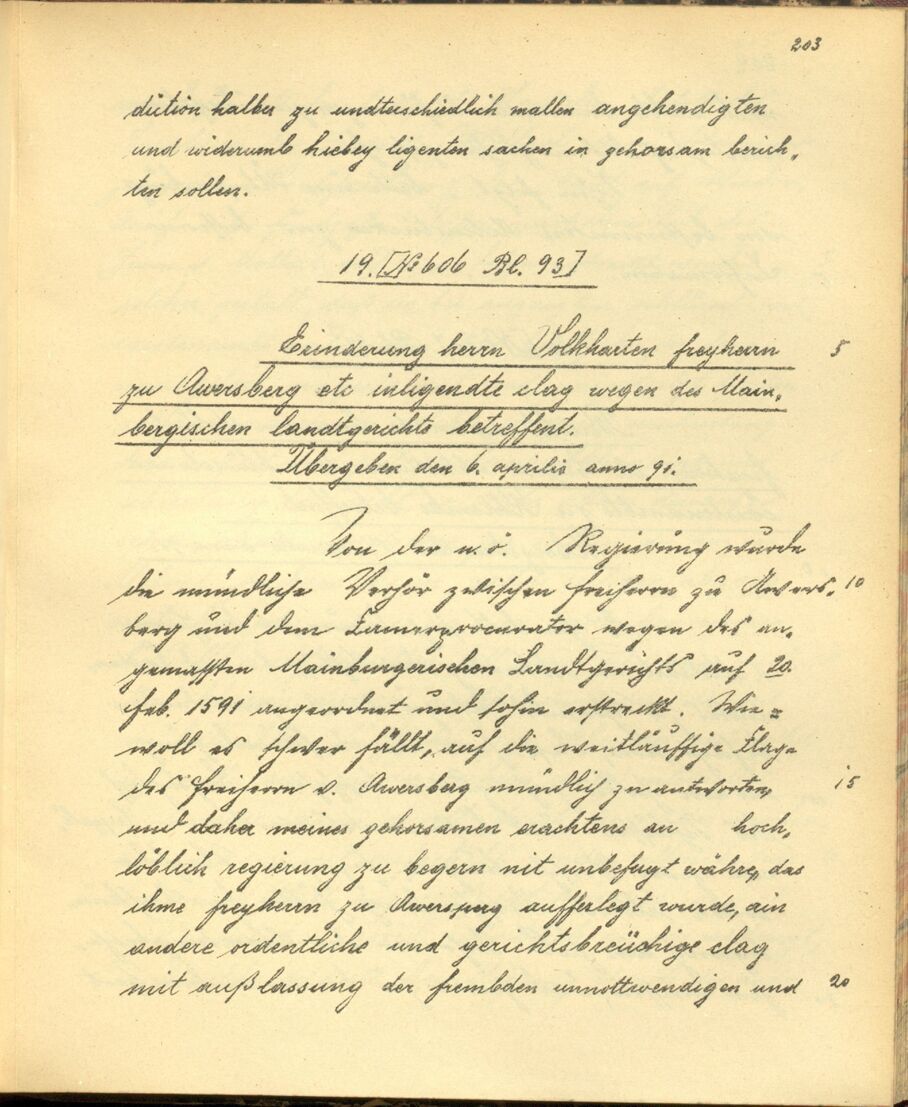 203
diction halber zu undterschiedlich mallen angehendigten
und widerumb hiebey ligenten sachen in gehorsam berich„
ten sollen.
19. [№ 606 Bl. 93]
Erinderung herrn Volkharten freyherrn 5
zu Awersberg etc inligendte clag wegen des Main„
bergischen landtgerichts betreffent.
Übergeben den 6. aprilis anno 91.
Von der n. ö. Regierung wurde
die mündliche Verhör zwischen Freiherrn zu Awers„ 10
berg und dem Kamerprocurator wegen des an„
gemassten Mainburgerischen Landtgerichts auf 20.
Feb. 1591 angeordnet und sohin erstreckt. Wie=
woll es schwer fällt, auf die weitläuffige Klage
des Freiherrn v. Awersberg mündlich zu antworten, 15
und daher meines gehorsamen erachtens an hoch„
löblich regierung zu begern nit unbefugt währe, das
ihme freyherrn zu Awersperg aufferlegt wurde, ain
andere ordentliche und gerichtsbreüchige clag
mit außlassung der frembden unnottwendigen und 20